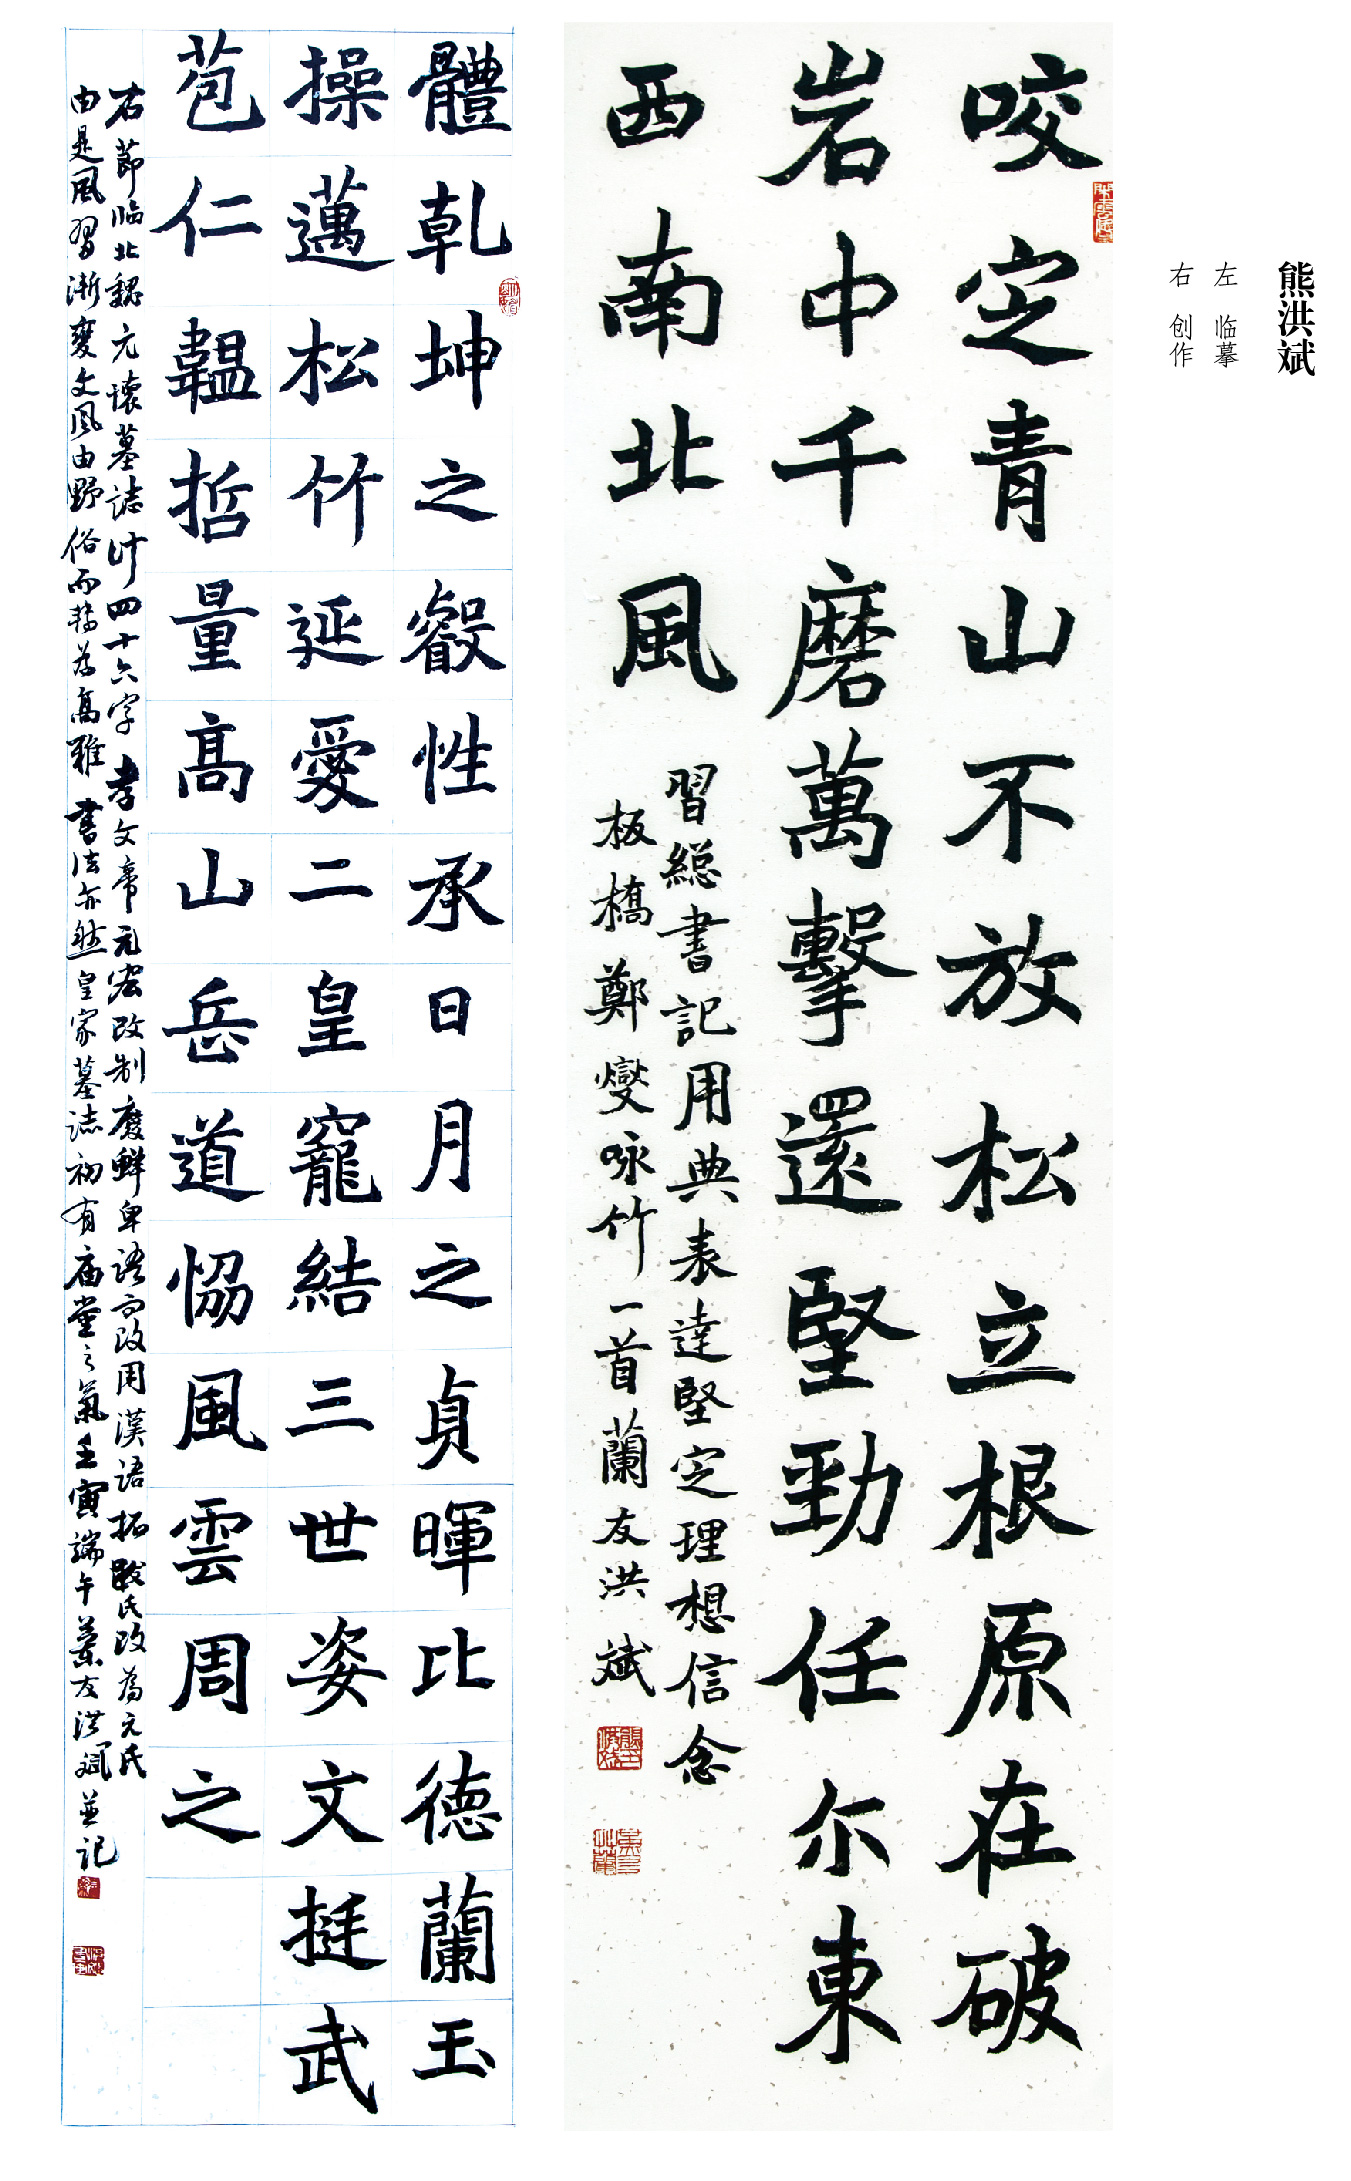 熊洪斌
左 临摹
右 创作
咬定青山不放松立根原在破
岩中千磨萬擊還堅勁任尔東
西南北風
習総書記用典表達堅定理想信念
板橋鄭燮咏竹一首蘭友洪斌
體乾坤之叡性承日月之貞暉比德蘭玉
操邁松竹延愛二皇寵結三世姿文挺武
苞仁韞哲量高山岳道恊風雲周之
右節临北魏元懷墓誌计四十六字孝文帝元宏改制廢鮮卑語而改用漢語拓跋氏改為元氏
由是風習漸變文風由野俗而轉為高雅書法亦然皇家墓誌初有庙堂之氣壬寅端午蘭友洪斌並記